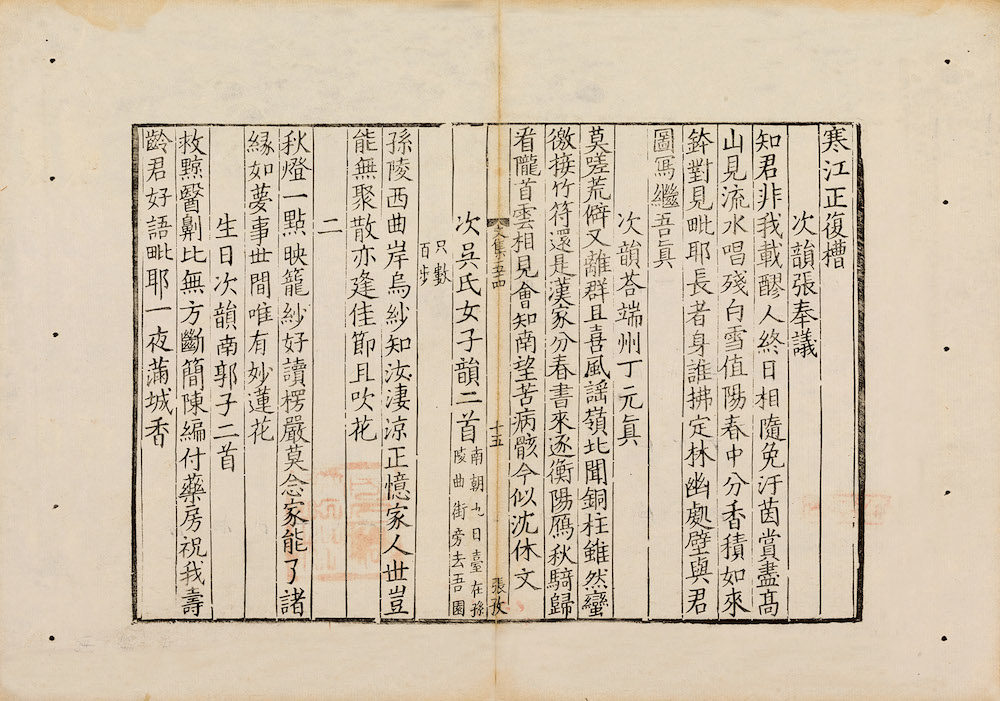 寒江正復槽
次韻張奉議
知君非我載醪人終日相隨免汙茵賞盡髙
山見流水唱殘白雪值陽春中分香積如來
鉢對見毗耶長者身誰拂定林幽處壁與君
圖寫繼吾真
次韻荅端州丁元真
莫嗟荒僻又離群且喜風謡嶺北聞銅柱雖然蠻
徼接竹符還是漢家分春書來逐衡陽鴈秋騎歸
看隴首雲相見會知南望苦病骸今似沈休文
文集三十四
十五
張孜
次吳氏女子韻二首南朝九日臺在孫
陵曲街旁去吾園
只數
百步
孫陵西曲岸烏紗知汝淒涼正憶家人世豈
能無聚散亦逢佳節且吹花
二
秋燈一點映籠紗好讀楞嚴莫念家能了諸
緣如夢事世間唯有妙蓮花
生日次韻南郭子二首
救黥醫劓比無方斷簡陳編付藥房祝我壽
齡君好語毗耶一夜滿城香